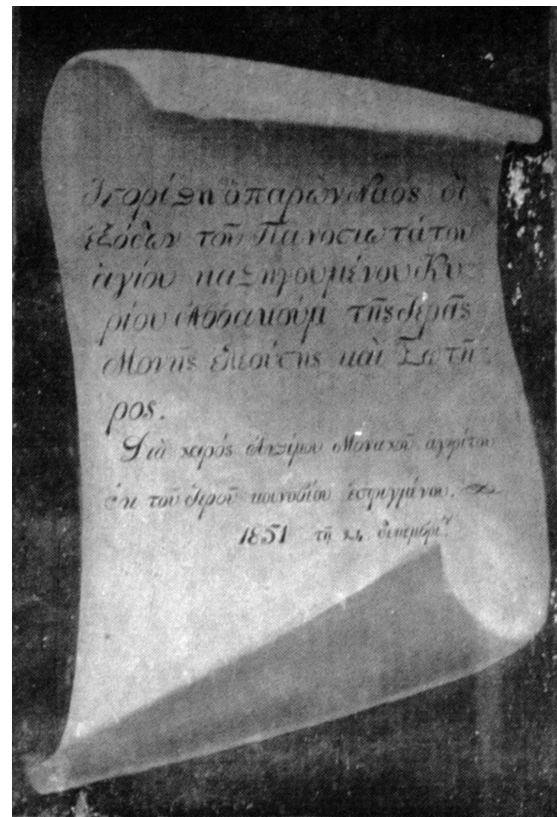 Ἱστορίθη ὁ παρὼν Ναός δι
ἐξόδων τοῦ Πανοσιωτάτου
ἁγίου καθηγουμένου Κυ
ρίου Ἀββακούμ τῆς Ἱερᾶς
Μονῆς ἐλεούσης καὶ Σωτῆ
ρος.
Διὰ χειρός Ἀνθίμου Μοναχοῦ
ἐκ τοῦ Ἱεροῦ κοινοβίου ἐσφιγμένου.
1851 τῇ δεκεμβρίου